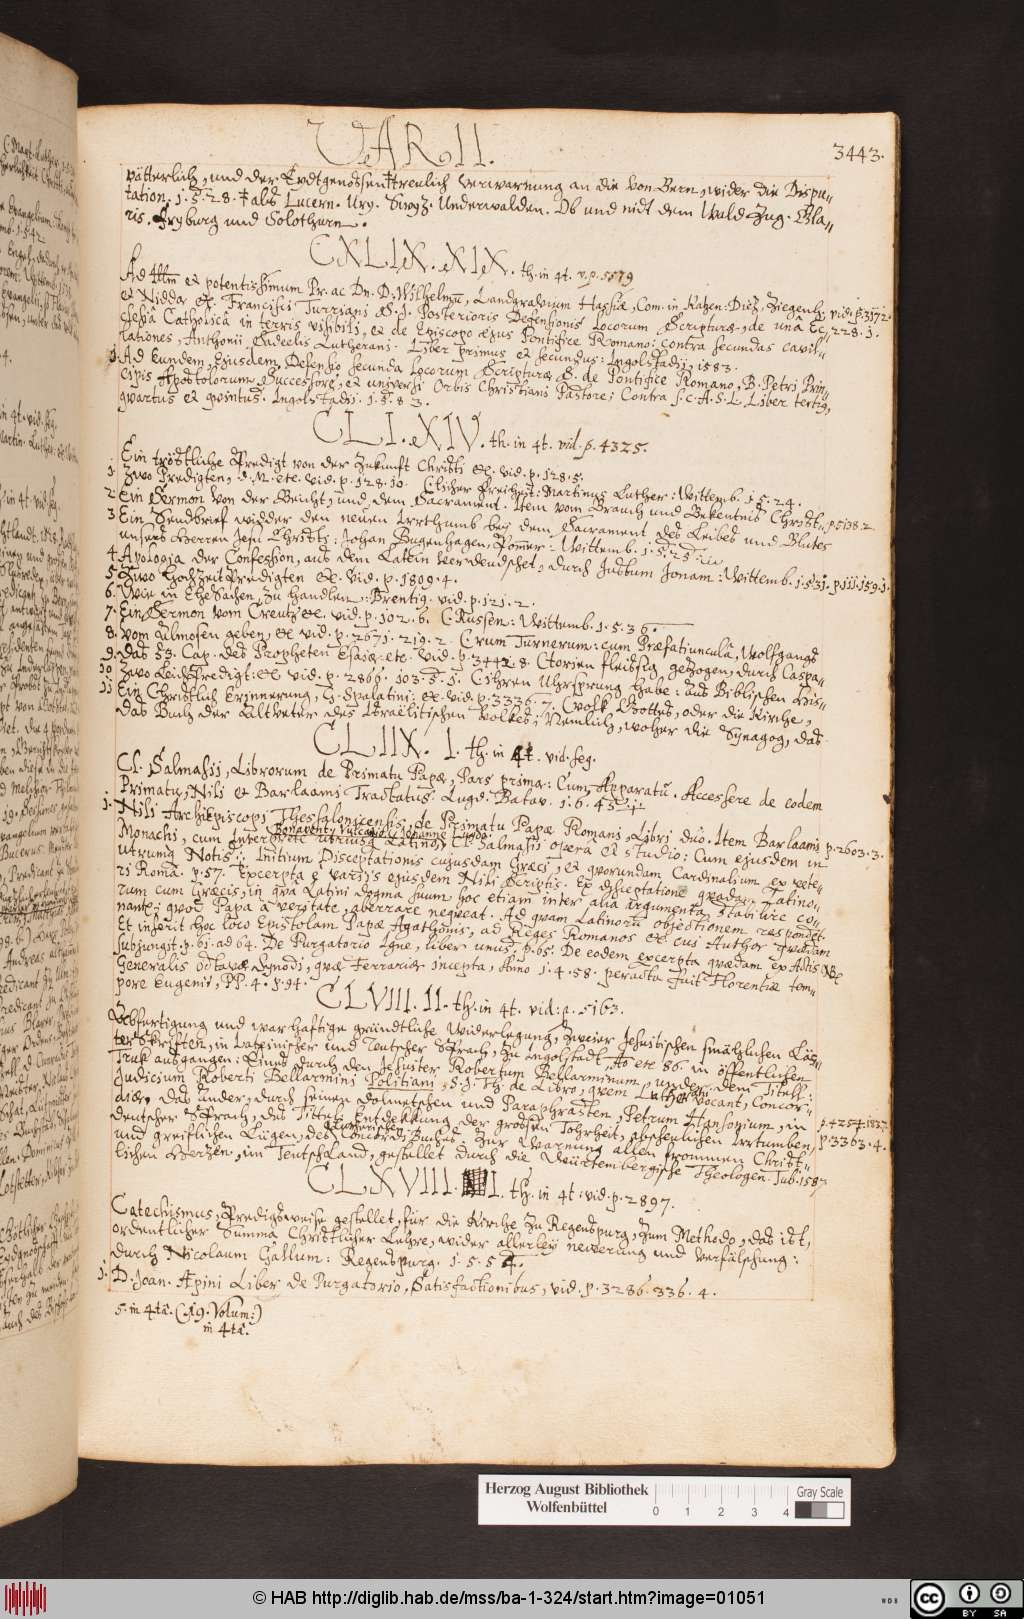 VARII.
3443.
vätterlich, und der Eydtgenossen ‡ treulich Verwarnung an die von Bern, wider die Dispu-
tation. 1.5.28. ‡ alß Lucern. Ury. Swyz. Underwalden. Ob und nidt dem Wald. Zug. Gla-
ris. Fryburg und Solothurn.
CXLIX. XIX. th. in 4t. v. p. 5579
Ad Illm et potentissimum Pr. ac Dn. D. Wilhelmū, Landgravium Hassiæ, Com. in Katzen. Diez, Ziegenh. vid. p. 3172.
et Nidda &c. Francisci Turriani S. J. Posterioris Defensionis Locorum Scripturæ, de unâ Ec- 228. 1.
clesiâ Catholicâ in terris visibili, et de Episcopo ejus Pontifice Romano: contra secundas cavil-
lationes, Anthonii Sadeelis Lutherani. Liber primus et secundus: Ingolstadij, 1583.
1. Ad Eundem, Ejusdem Defensio secunda Locorum Scripturæ S. de Pontifice Romano, B. Petri Prin-
cipis Apostolorum Successore, et universi Orbis Christiani Pastore; Contra S. C. A. S. L. Liber tertig,
quartus et quintus. Ingolstadii. 1.5.8 3.
CLI. XIV. th. in 4t. vid. p. 4325.
Ein tröstliche Predigt von der Zukunft Christi &c. vid. p. 128. 5.
1. Zwo Predigten, D. M. etc. vid. p. 128. 10. Clicher Freiheyt: Martinus Luther: Wittemb. 1.5.24.
2. Ein Sermon von der Beicht, und dem Sacrament. Item vom Brauch und Bekentnis Christ- p. 5138. 2.
3. Ein Sendbrief widder den neuen Irrthumb bey dem Sacrament des Leibes und Blutes
unsers Herren Jesu Christi: Johan Bugenhagen, Pomer: Wittemb. 1.5.25.
4. Apologia der Confession, aus dem Latein verdeudschet, durch Justum Jonam: Wittemb. 1.531. p. 111. 159. 1.
5. Zwo Hochzeit Predigten &c. vid. p. 1809. 4.
6. Wie in Ehe Sachen, zu handlen: Brentig. vid. p. 121. 2.
7. Ein Sermon vom Creutz &c. vid. p. 102. 6. C. Russen: Wittemb. 1.5.36.
8. vom Almosen geben, &c vid. p. 2671. 219. 2. C rum Turnerum: cum Præfatiunculâ, Wolfgangs
9. das 53. Cap. des Propheten Esaiæ. etc. vid. p. 3442. 8. C torien fleissig gezogen, durch Caspa-
10. Zwo Leich Predigt: &c vid. p. 2869. 103. 5. 1. C ihren Uhrsprung habe: aus Biblischen His-
11. Ein Christlich Erinnerung, G. Spalatini: &c. vid. p. 3336. 7. C volk Gottes, oder die Kirche,
das Buch der Altveter des Israëlitischen Volkes; Nemlich, woher die Synagog, das
CLIIX. 1. th. in 4t. vid. seg.
Cl. Salmasii, Librorum de Primatu Papæ, Pars prima: Cum Apparatu. Accessere de eodem
Primatu, Nili et Barlaami Tractatus. Lugd. Batav. 1.6.45
1. Nili Archiepiscopi Thessalonicensis, de Primatu Papæ Romani, Libri duo. Item Barlaami p. 2603. 3.
Bonaventu Vulcanio, Johanne Luido
Monachi, cum Interprete utriusq Latino, Cl. Salmasii operâ et studio: Cum ejusdem in
utrumq Notis: Initium Disceptationis cujusdam Græci, et quorundam Cardinalium ex vete-
ri Româ. p. 57. Excerpta è varijs ejusdem Nili Scriptis. Ex disceptatione quadam Latino-
rum cum Græcis, in qua Latini dogma suum, hoc etiam inter alia argumenta stabilire co-
nantr; quod Papa à veritate, aberrare nequeat. Ad quam Latinorū objectionem respondet.
Et inserit hoc loco Epistolam Papæ Agathonis, ad Reges Romanos &c cui Author quædam
subjungit. p. 61. ad 64. De Purgatorio Igne, liber unus. p. 65. De eodem excerpta quædam ex Actis NB
Generalis octavæ Synodi, quæ Ferrariæ incepta, Anno 1.4.58. peracta fuit Florentiæ tem-
pore Eugenii, PP. 4. p. 94.
CLVIII. 11. th. in 4t. vid: p. 5163.
Abfertigung und warhaftige gründtliche Widerlegung, zweier Jesuitischen smälichen Läs-
ter Skriften, in Lateinischer und Teutscher Sprach, zu Ingolstadt Ao etc 86. in öffentlichen
Truk ausgangen: Eines durch den Jesuiter Robertum Bellarminum, unter dem Titell:
Judicium Roberti Bellarmini Politiani, S. J. Th. de Libro, quem Lutherani vocant, Concor-
diæ, Das ander, durch seinen Dolmetschen und Paraphrasten, Petrum Hansonium, in
deutscher Sprach, des Tituls Entdekkung der grossen Tohrheit, abscheulichen Irrtumben p. 4254. 1837.
Luterischen
und greiflichen Lügen, des Concordi Buches. Zur Warnung allen frommen Christ- p. 3363. 4.
lichen Hertzen, im Teutschland, gestellet durch die Würtembergische Theologen. Tub. 1587
CLXVIII. I. th. in 4t: vid. p. 2897.
Catechismus, Predigsweise gestellet, für die Kirche zu Regenspurg, zum Methodo, das ist,
ordentlicher Summa Christlicher Lehre, wider allerley newerung und verfälschung:
durch Nicolaum Gallum: Regenspurg. 1.5.5 4.
1. D. Joan. Æpini Liber de Purgatorio, Satisfactionibus, vid. p. 3286. 336. 4.
5. in 4tâ. (19. Volum:)
in 4tâ.
Herzog August Bibliothek
Wolfenbüttel
0 1 2 3 4
Gray Scale
© HAB http://diglib.hab.de/mss/ba-1-324/start.htm?image=01051
cc BY SA